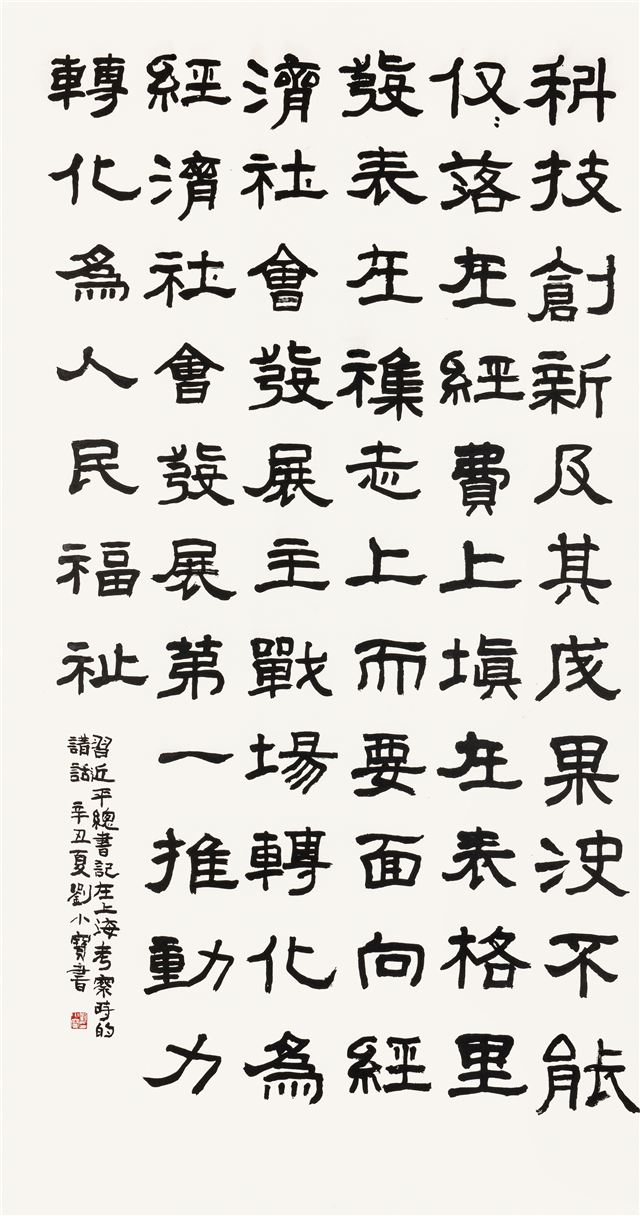 科技創新及其成果決不能
仅〻落在經費上填在表格里
發表在雜志上而要面向經
濟社會發展主戰場轉化為
經濟社會發展第一推動力
轉化為人民福祉
習近平總書記在上海考察时的
講話 辛丑夏劉小寶書